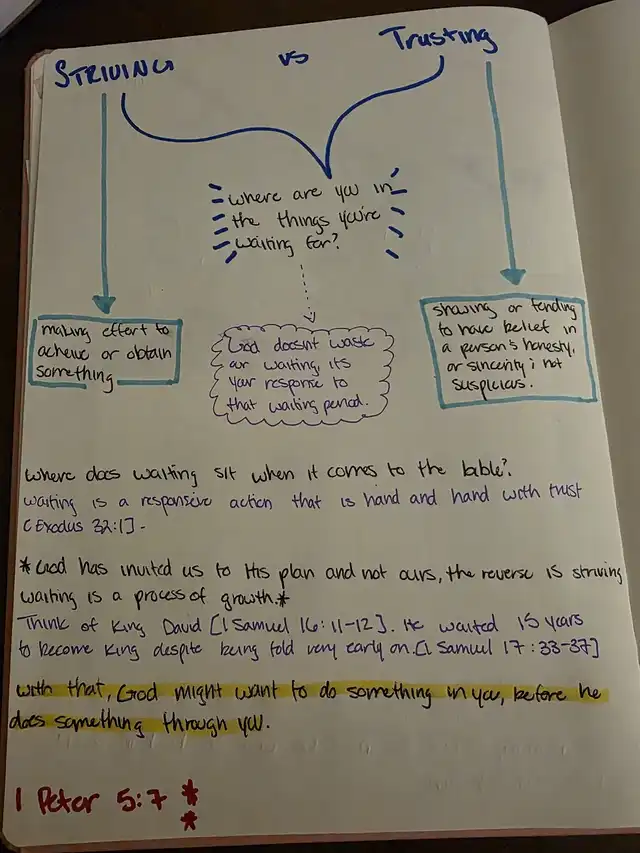 STRIVING vs Trusting
where are you in
the things you're
waiting for?
making effort to
achieve or obtain
something
God doesnt waste
our waiting, its
your response to
that waiting period.
showing or tending
to have belief in
a person's honesty,
or sincerity; not
suspicious.
where does waiting sit when it comes to the bable?
waiting is a responsive action that is hand and hand with trust
[Exodus 32:1].
*God has invited us to His plan and not ours, the reverse is striving
waiting is a process of growth.*
Think of King David [1 Samuel 16:11-12]. He waited 15 years
to become King despite being told very early on.[1 Samuel 17:33-37]
with that, God might want to do something in you, before he
does something through you.
1 Peter 5:7 *
*